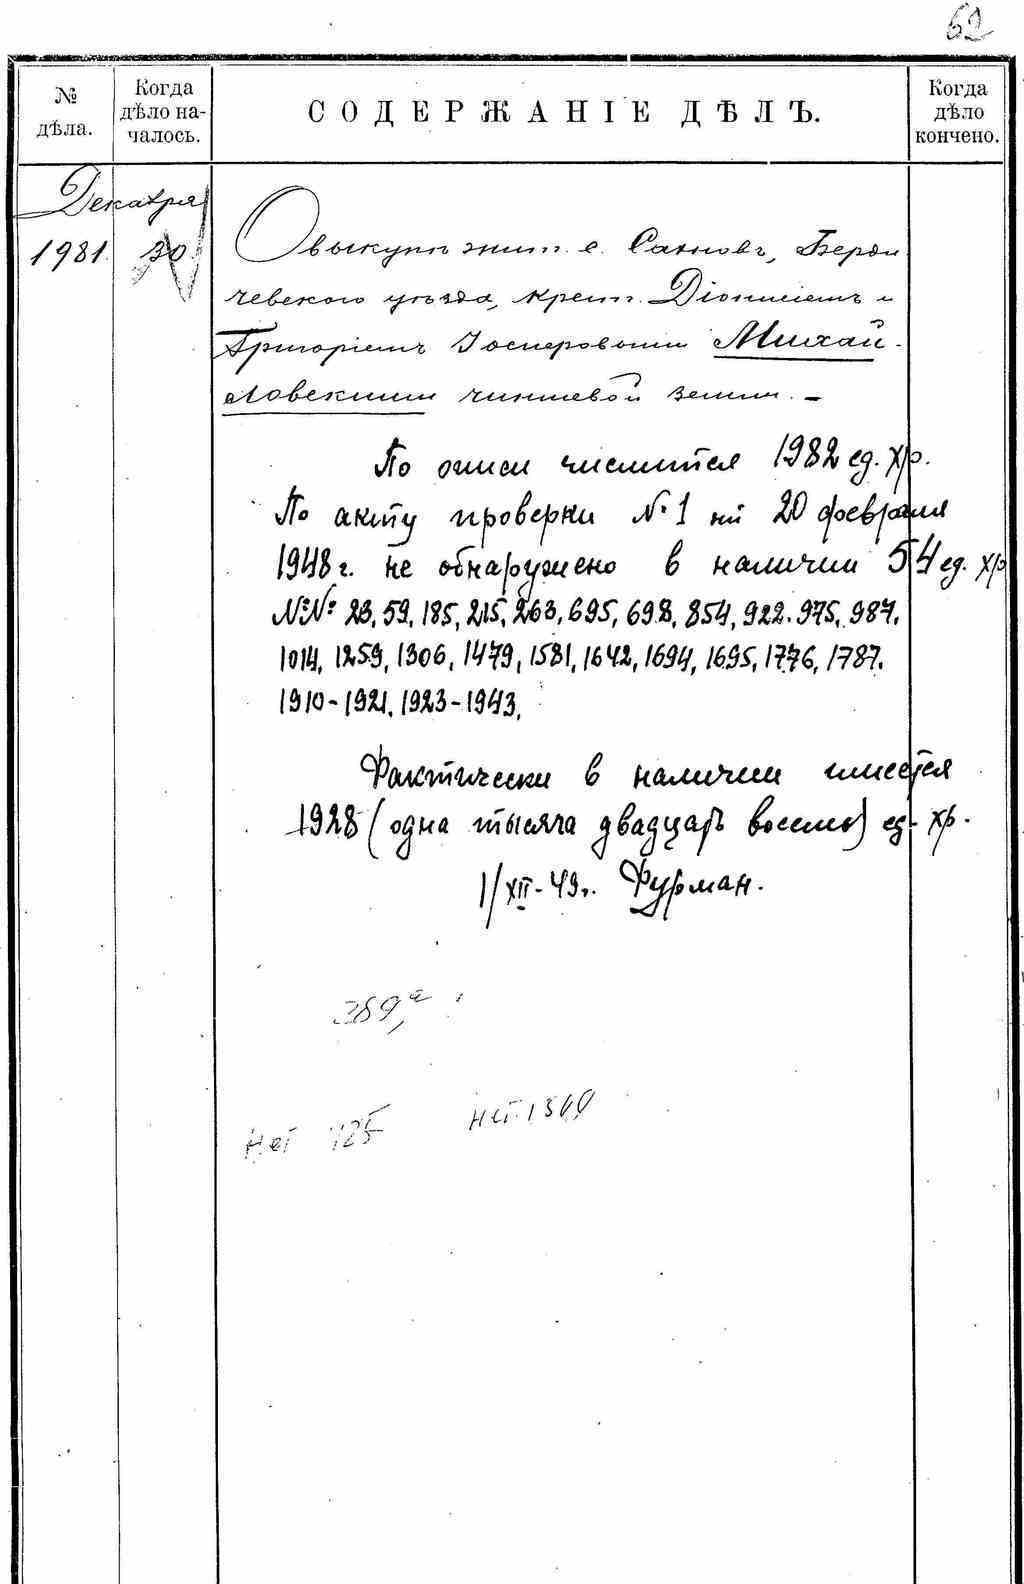 62
№ дѣла.
Когда дѣло на-
чалось.
СОДЕРЖАНІЕ ДѢЛЪ.
Когда дѣло кончено.
Декабря
1981. 30.
О выкупѣ жит. с. Сахновъ, Берди
чевскаго уѣзда, крест. Діонисіемъ и
Григоріемъ Іосифовыми Михай-
ловскими чиншевой земли. —
По описи числится 1982 ед. хр.
По акту проверки №1 на 20 февраля
1948 г. не обнаружено в наличии 54 ед. хр
№№ 23, 59, 185, 215, 263, 695, 698, 854, 922. 975, 987,
1014, 1259, 1306, 1479, 1581, 1642, 1694, 1695, 1776, 1787.
1910-1921, 1923-1943.
Фактически в наличии имеется
1928 (одна тысяча двадцать восемь) ед. хр.
1/XII-49г. Фурман.
389,а
Нет 425 нет 1300